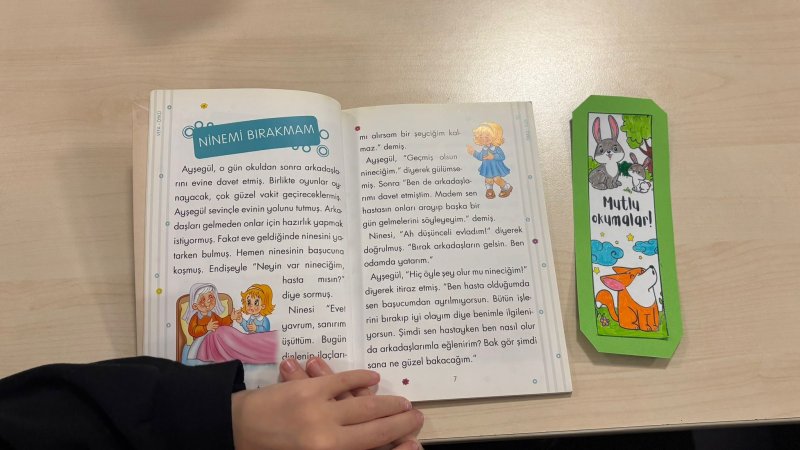 NİNEMİ BIRAKMAM
Ayşegül, o gün okuldan sonra arkadaşla-
rını evine davet etmiş. Birlikte oyunlar oy-
nayacak, çok güzel vakit geçireceklermiş.
Ayşegül sevinçle evinin yolunu tutmuş. Arka-
daşları gelmeden onlar için hazırlık yapmak
istiyormuş. Fakat eve geldiğinde ninesini ya-
tarken bulmuş. Hemen ninesinin başucuna
koşmuş. Endişeyle "Neyin var nineciğim,
hasta mısın?"
diye sormuş.
Ninesi "Evet
yavrum, sanırım
üşüttüm. Bugün
dinlenip ilaçları-
mı alırsam bir şeyciğim kal-
maz." demiş.
Ayşegül, "Geçmiş olsun
nineciğim." diyerek gülümse-
miş. Sonra "Ben de arkadaşla-
rımı davet etmiştim. Madem sen
hastasın onları arayıp başka bir
gün gelmelerini söyleyeyim." demiş.
Ninesi, "Ah düşünceli evladım!" diyerek
doğrulmuş. "Bırak arkadaşların gelsin. Ben
odamda yatarım."
Ayşegül, "Hiç öyle şey olur mu nineciğim!"
diyerek itiraz etmiş. "Ben hasta olduğumda
sen başucumdan ayrılmıyorsun. Bütün işle-
rini bırakıp iyi olayım diye benimle ilgileni-
yorsun. Şimdi sen hastayken ben nasıl olur
da arkadaşlarımla eğlenirim? Bak gör şimdi
sana ne güzel bakacağım."
7
Mutlu
okumalar!